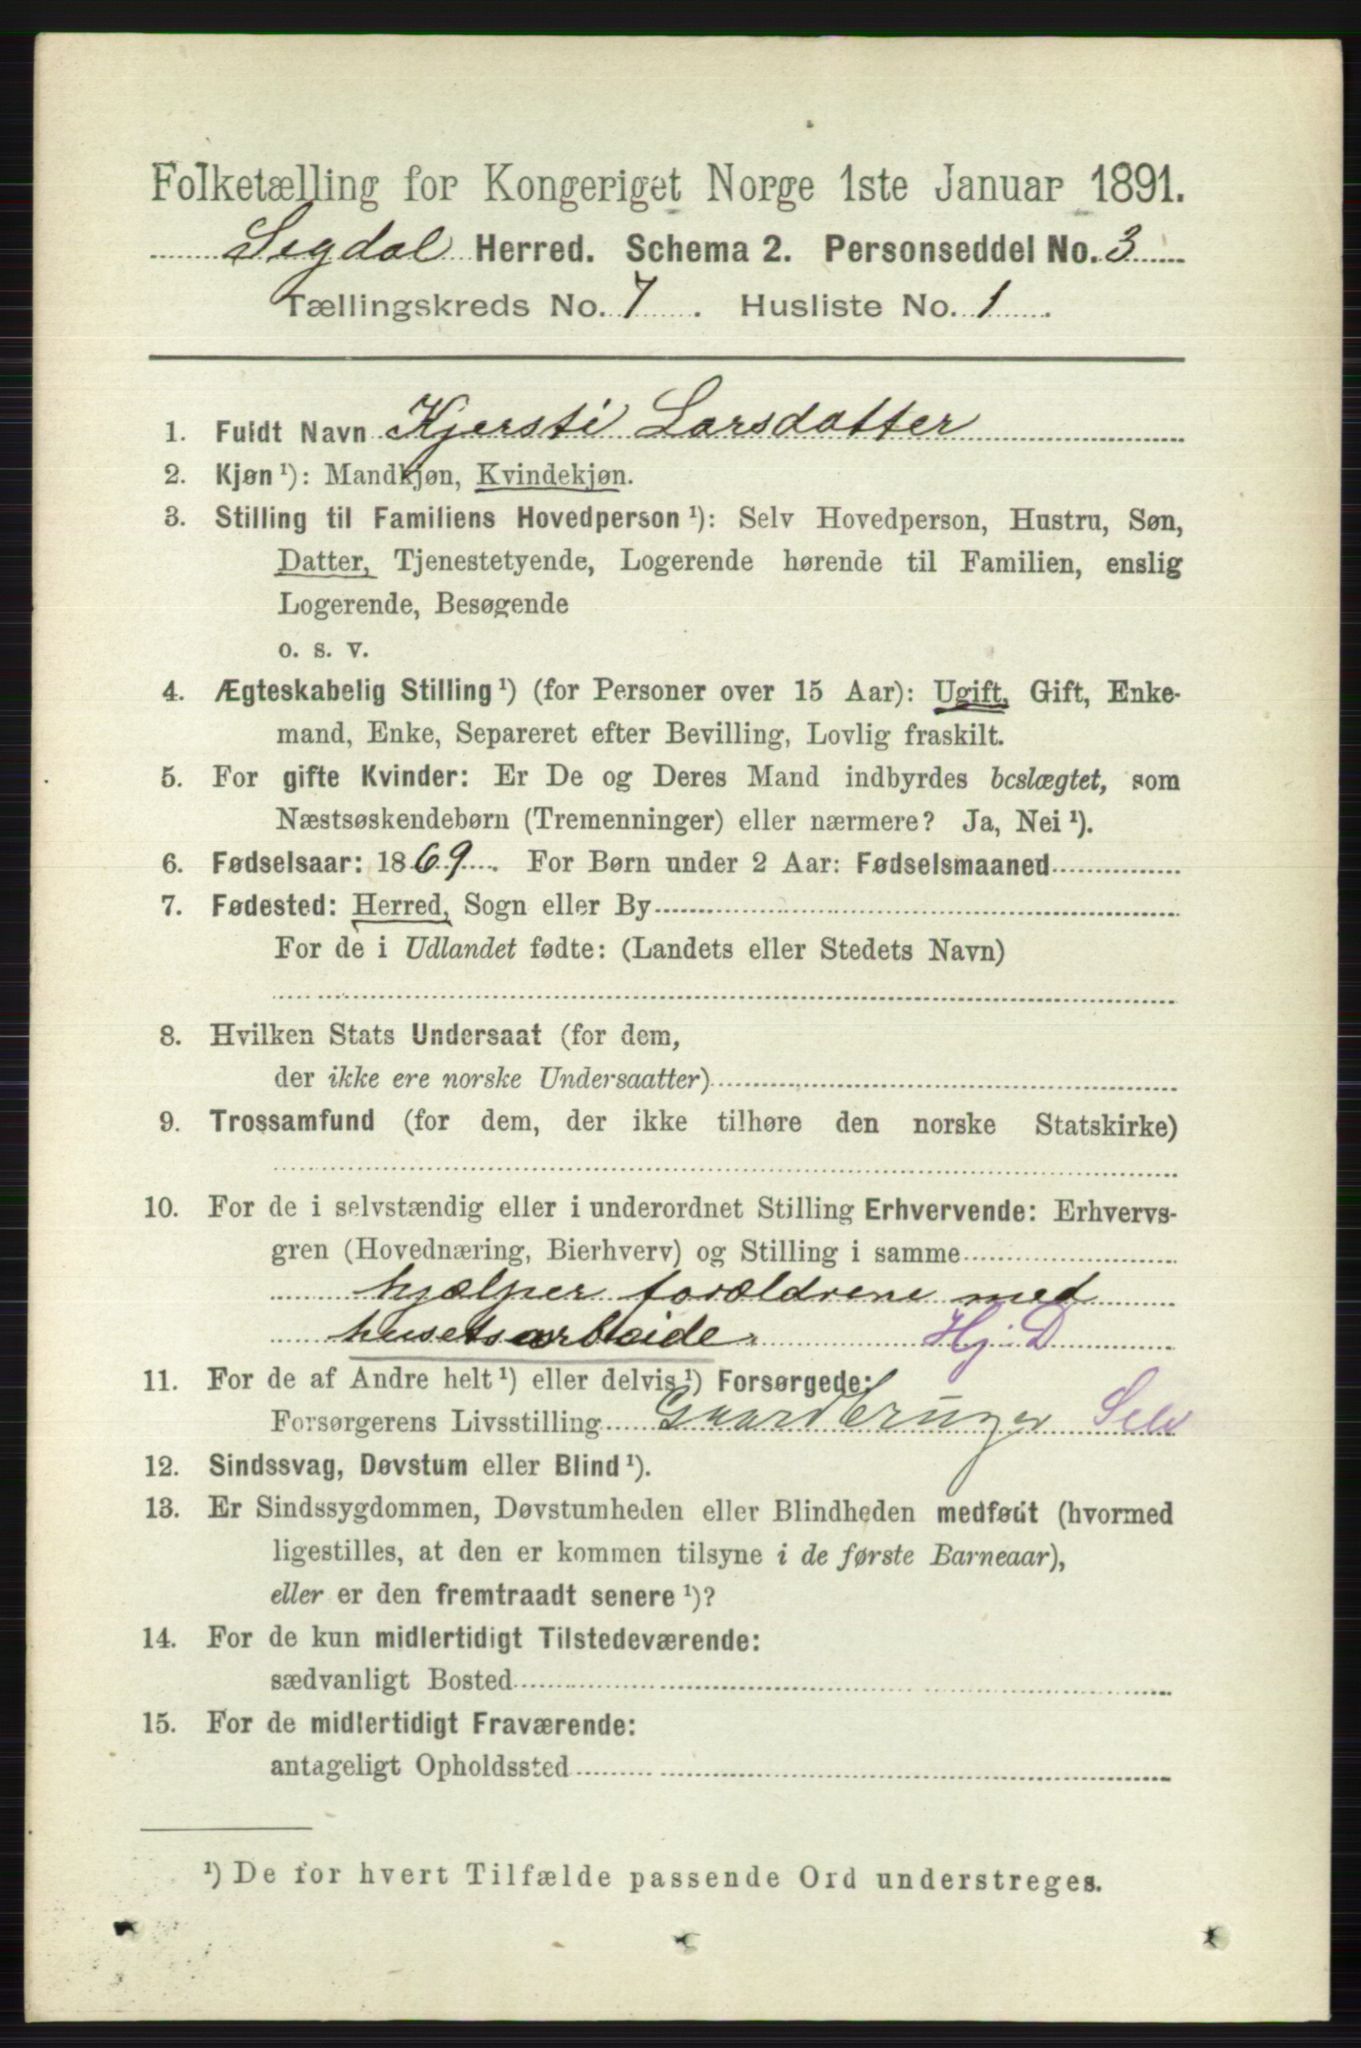 Folketælling for Kongeriget Norge 1ste Januar 1891.
Sigdal Herred. Schema 2. Personseddel No. 3
Tællingskreds No. 7. Husliste No. 1.
1. Fuldt Navn Kjersti Larsdatter
2. Kjøn ¹): Mandkjøn, Kvindekjøn.
3. Stilling til Familiens Hovedperson ¹): Selv Hovedperson, Hustru, Søn,
Datter, Tjenestetyende, Logerende hørende til Familien, enslig
Logerende, Besøgende
o. s. v.
4. Ægteskabelig Stilling ¹) (for Personer over 15 Aar): Ugift, Gift, Enke-
mand, Enke, Separeret efter Bevilling, Lovlig fraskilt.
5. For gifte Kvinder: Er De og Deres Mand indbyrdes beslægtet, som
Næstsøskendebørn (Tremenninger) eller nærmere? Ja, Nei ¹).
6. Fødselsaar: 1869. For Børn under 2 Aar: Fødselsmaaned
7. Fødested: Herred, Sogn eller By
For de i Udlandet fødte: (Landets eller Stedets Navn)
8. Hvilken Stats Undersaat (for dem,
der ikke ere norske Undersaatter)
9. Trossamfund (for dem, der ikke tilhøre den norske Statskirke)
10. For de i selvstændig eller i underordnet Stilling Erhvervende: Erhvervs-
gren (Hovednæring, Bierhverv) og Stilling i samme
hjælper forældrene med
husetsarbeide. Hj. D
11. For de af Andre helt ¹) eller delvis ¹) Forsørgede:
Forsørgerens Livsstilling Gaardbruger Selv
12. Sindssvag, Døvstum eller Blind ¹).
13. Er Sindssygdommen, Døvstumheden eller Blindheden medfødt (hvormed
ligestilles, at den er kommen tilsyne i de første Barneaar),
eller er den fremtraadt senere ¹)?
14. For de kun midlertidigt Tilstedeværende:
sædvanligt Bosted
15. For de midlertidigt Fraværende:
antageligt Opholdssted
¹) De for hvert Tilfælde passende Ord understreges.